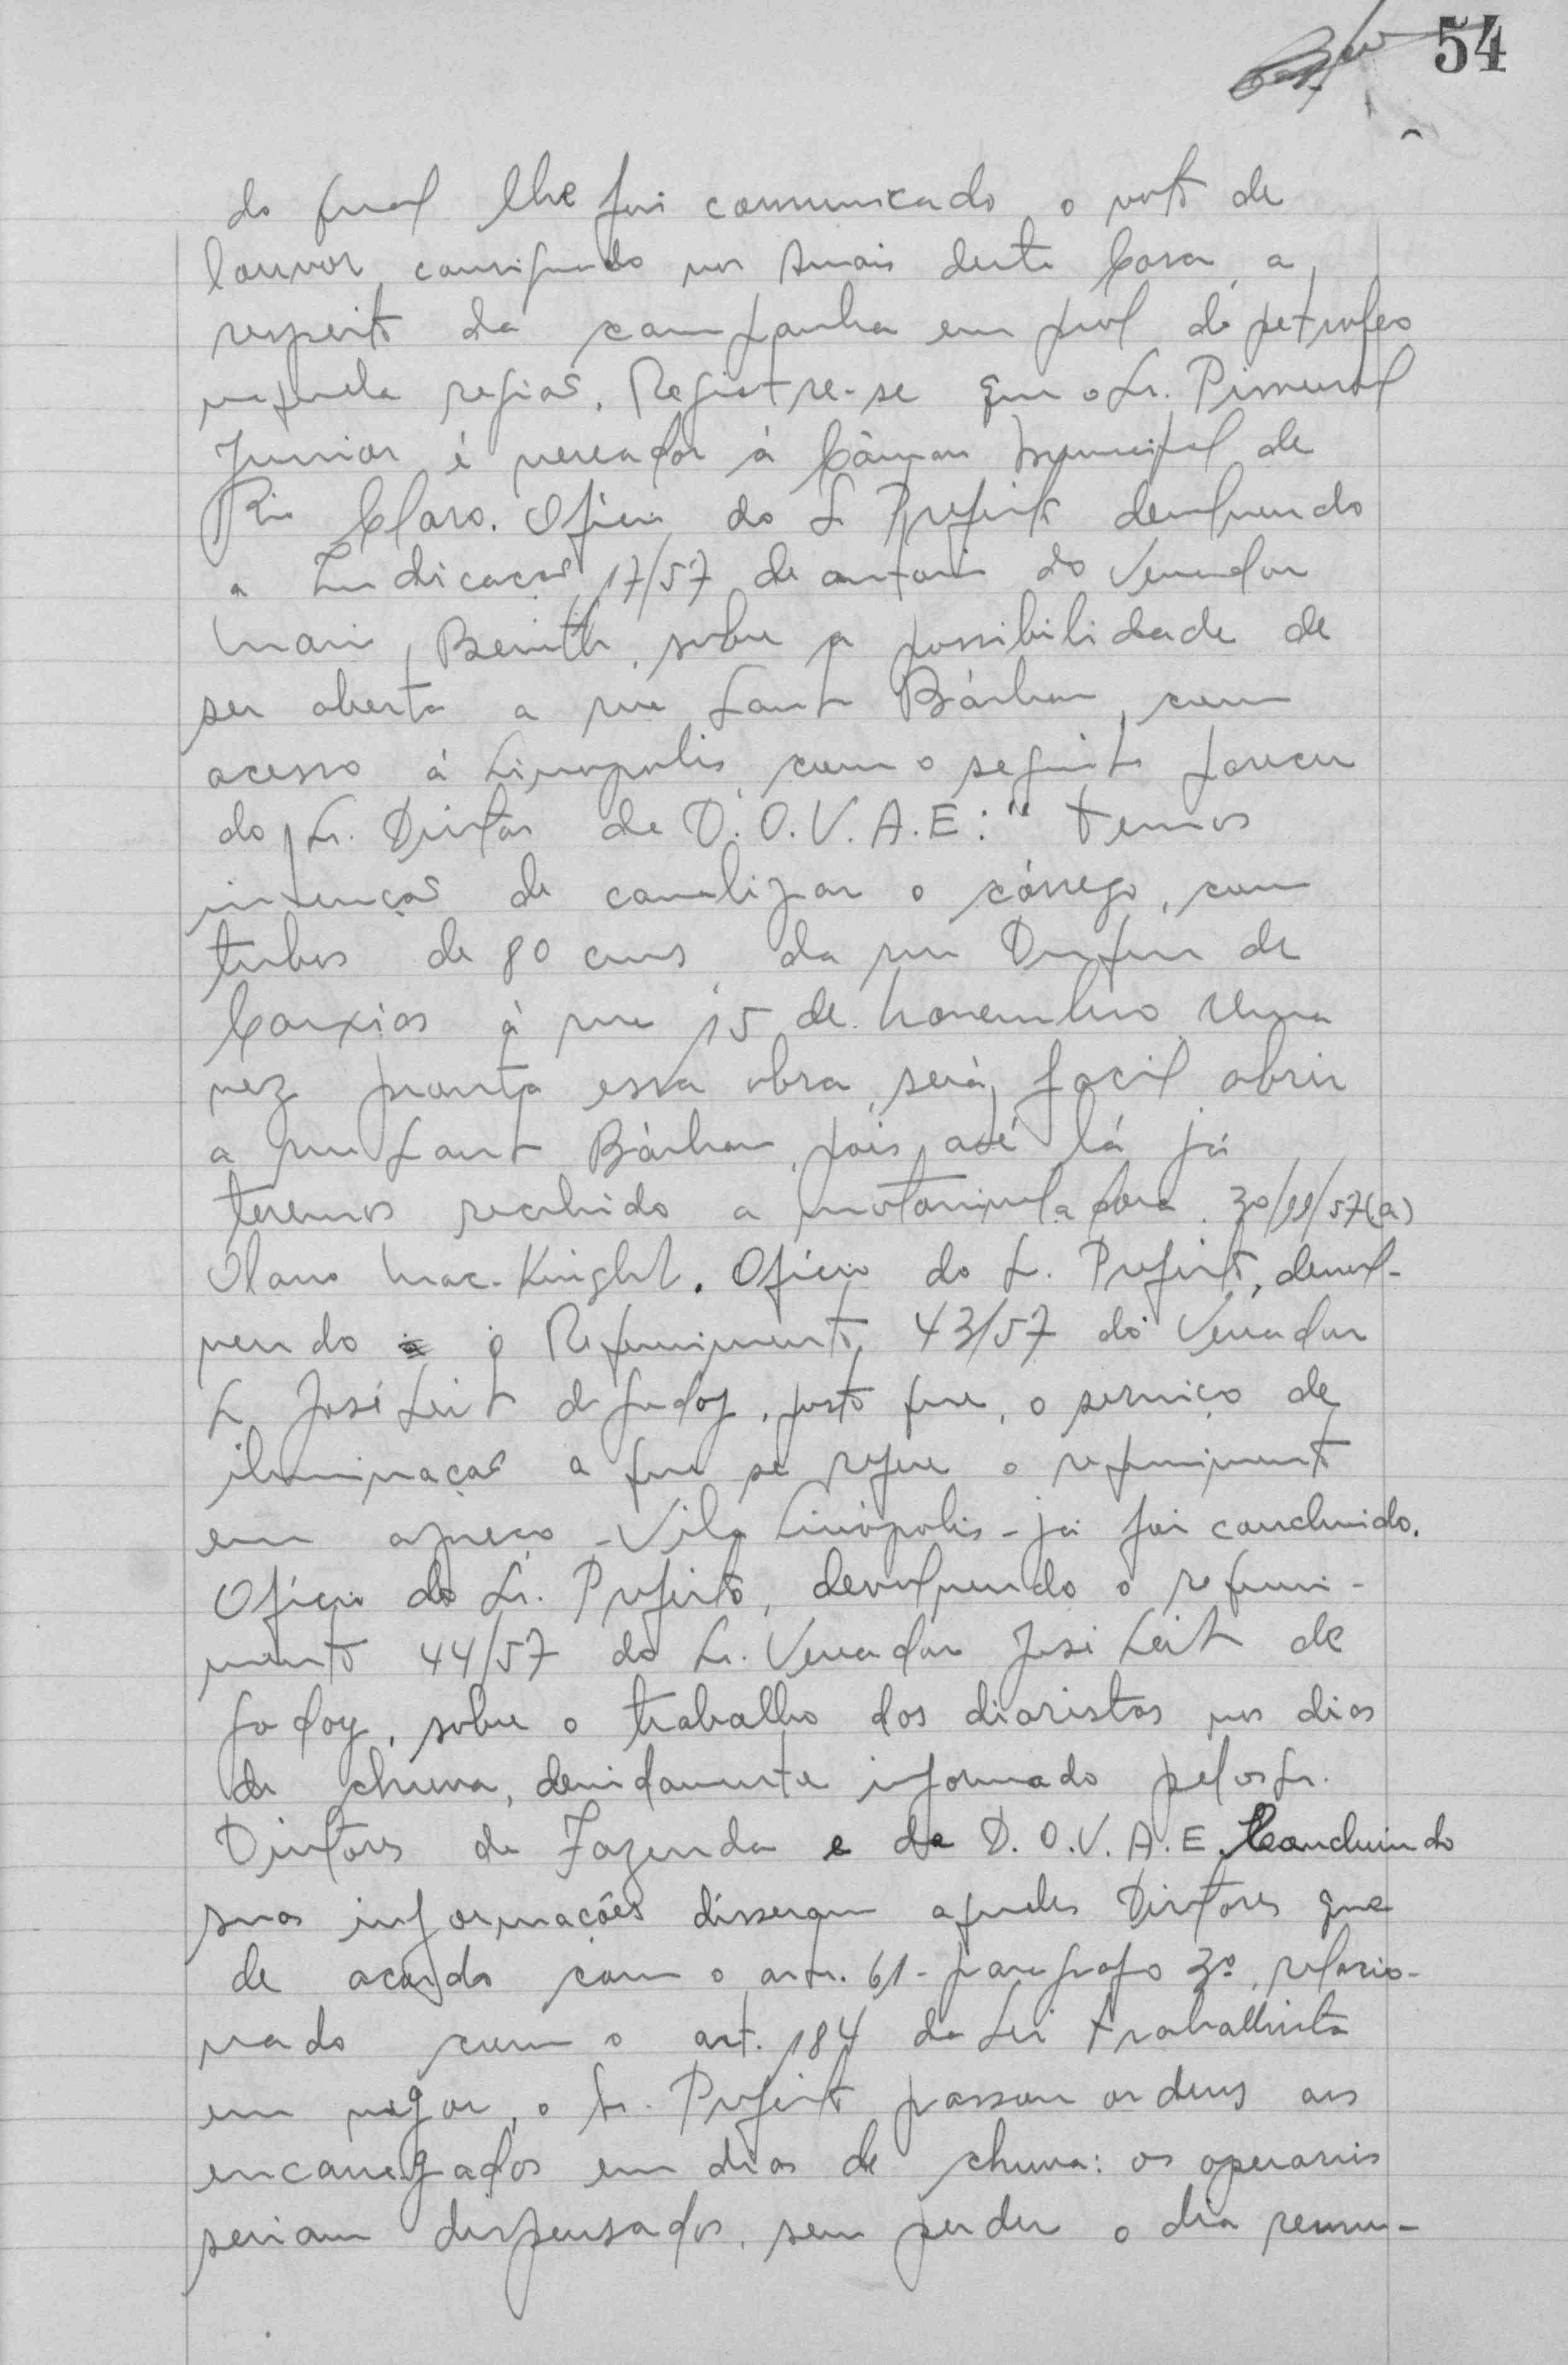 54
do qual lhe foi comunicado o voto de
louvor consignado nos Anais desta Casa, a
respeito da campanha em prol do petroleo
naquela região. Registre-se que o Sr. Pimentel
Junior é vereador à Câmara Municipal de
Rio Claro. Ofício do Sr Prefeito devolvendo
a Indicação 17/57 de autoria do Vereador
Mario Benith, sobre a possibilidade de
ser aberta a rua Santa Bárbara, com
acesso à Linopolis, com o seguinte parecer
do Sr. Diretor de D.O.V.A.E: "temos
intenção de canalizar o córrego, com
tubos de 80 cms, da rua Duque de
Caxias à rua 15 de novembro. Uma
vez pronta essa obra, será facil abrir
a rua Santa Bárbara, pois até lá já
teremos recebido a motoniveladora. 30/11/57(a)
Olavo Mac-Knight. Ofício do Sr. Prefeito, devol-
vendo o Requerimento 43/57 do Vereador
Sr José Leite de Godoy, posto que, o serviço de
iluminação a que se refere o requerimento
em apreço - Vila Linópolis - já foi concluido.
Ofício do Sr. Prefeito, devolvendo o requeri-
mento 44/57 do Sr. Vereador José Leite de
Godoy, sobre o trabalho dos diaristas nos dias
de chuva, devidamente informado pelos Srs.
Diretores de Fazenda e da D.O.V.A.E. Concluindo
suas informações disseram aqueles Diretores que
de acordo com o art. 61 - paragrafo 3º, relacio-
nado com o art. 184 da Lei trabalhista
em vigor, o Sr. Prefeito passou ordens aos
encarregados em dias de chuva: os operarios
seriam dispensados, sem perder o dia remun-